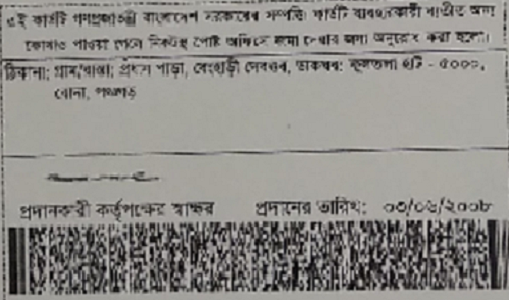 এই কার্ডটি গণপ্রজাতন্ত্রী বাংলাদেশ সরকারের সম্পত্তি। কার্ডটি ব্যবহারকারী ব্যতীত অন্য
কোথাও পাওয়া গেলে নিকটস্থ পোষ্ট অফিসে জমা দেবার জন্য অনুরোধ করা হলো।
ঠিকানা: গ্রাম/রাস্তা: প্রধান পাড়া, বেংহাড়ী ডাকঘর: ফুলতলা হাট - ৫০০০,
বোদা, পঞ্চগড়
প্রদানকারী কর্তৃপক্ষের স্বাক্ষর প্রদানের তারিখ: ০৩/০৬/২০০৮